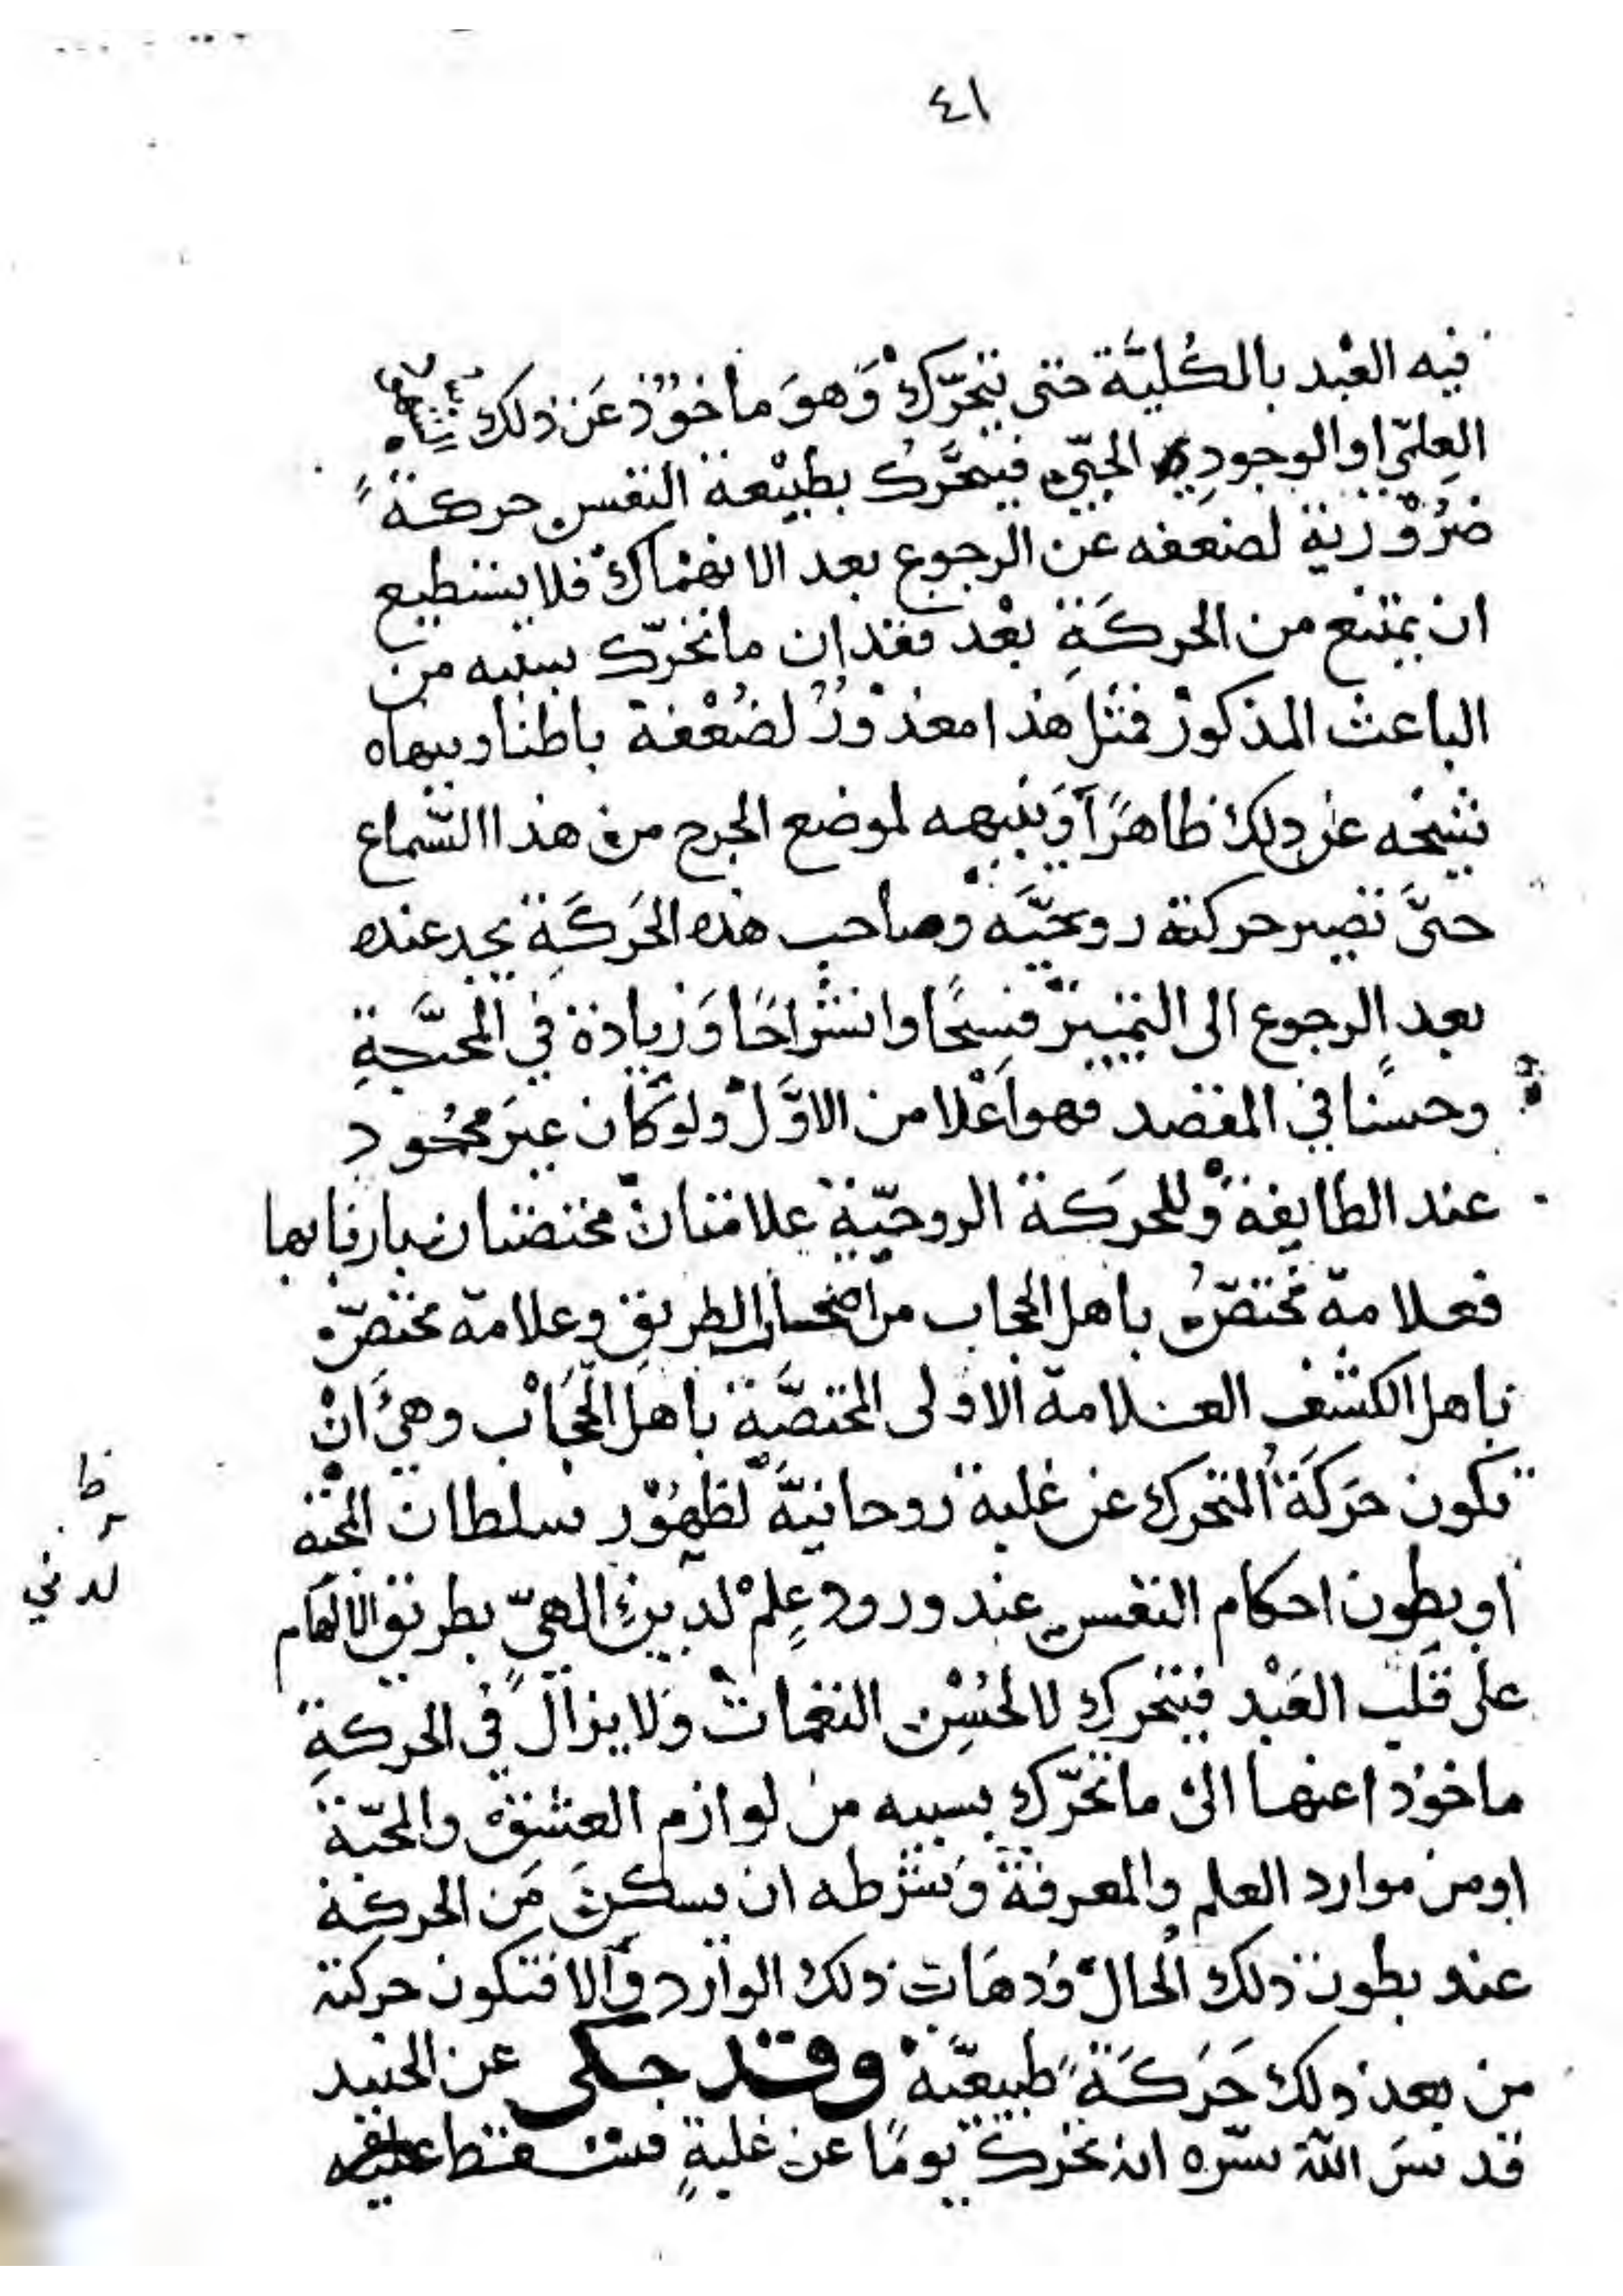 ٤١
فيه العبْد بالكُليَّة حتى يتحرّكْ وَهوَ ماخوْذ عَن ذلك
العِلميّ او الوجودي الحبّي فيتحَّرك بطبيْعة النفس حركةً
ضرُوْرية لضعفه عن الرجوع بعد الانهماك فلا يستطيع
ان يمتنع من الحركَةِ بعْد فقدان ما تحرّك بسببه من
الباعث المذكورْ فمثل هذا معذوْرُ لضُعْفة باطنا وينهاه
شيخه عن ذلك ظاهرًا وَينبهه لموضع الجرح من هذا السّماع
حتىَّ تصير حركتة روحيَّه وصاحب هذه الحَركَةِ يجد عنده
بعد الرجوع الى التمييز فسحًا وانشراحًا وَزيادة في المحبَّةِ
وحسنًا في المقصد فهو اَعْلا من الاوَّلْ ولوَ كان غيرَ محمُود
عند الطايفة وللحرَكة الروحيّة علامتانْ مختصتان باربابها
فعلامة مختصّةُ باهل الحجاب من اصحاب الطريق وعلامة مختصّة
باهل الكشف العلامة الاولى المختصَّة باهل الحجَابْ وهيَ اَنْ
تكون حَركَةُ المتحرك عن غلبة روحانيَّة لظهُوْر سلطان المحبَّة
او بطون احكام النفس عند ورود عِلمْ لديني الهيّ بطريق الالهَام
على قَلبْ العَبْد فيتحرك لا لحُسْن النغمات وَلا يزال في الحركةِ
ماخوْذا عنها الى ما تحرّك بسببه من لوازم العشق والمحبّة
او من موارد العلم والمعرفة وَشرطه ان يسكن مَن الحركة
عند بطون ذلك الحال وَذهَاب ذلك الوارد وَالا فتكون حركته
من بعد ذلك حَركَةً طبيعيَّة وقد حكى عن الجنيد
قد سَ اللّه سّره انه تحرك يومًا عن غلبةٍ فسقط
ظ
لدني